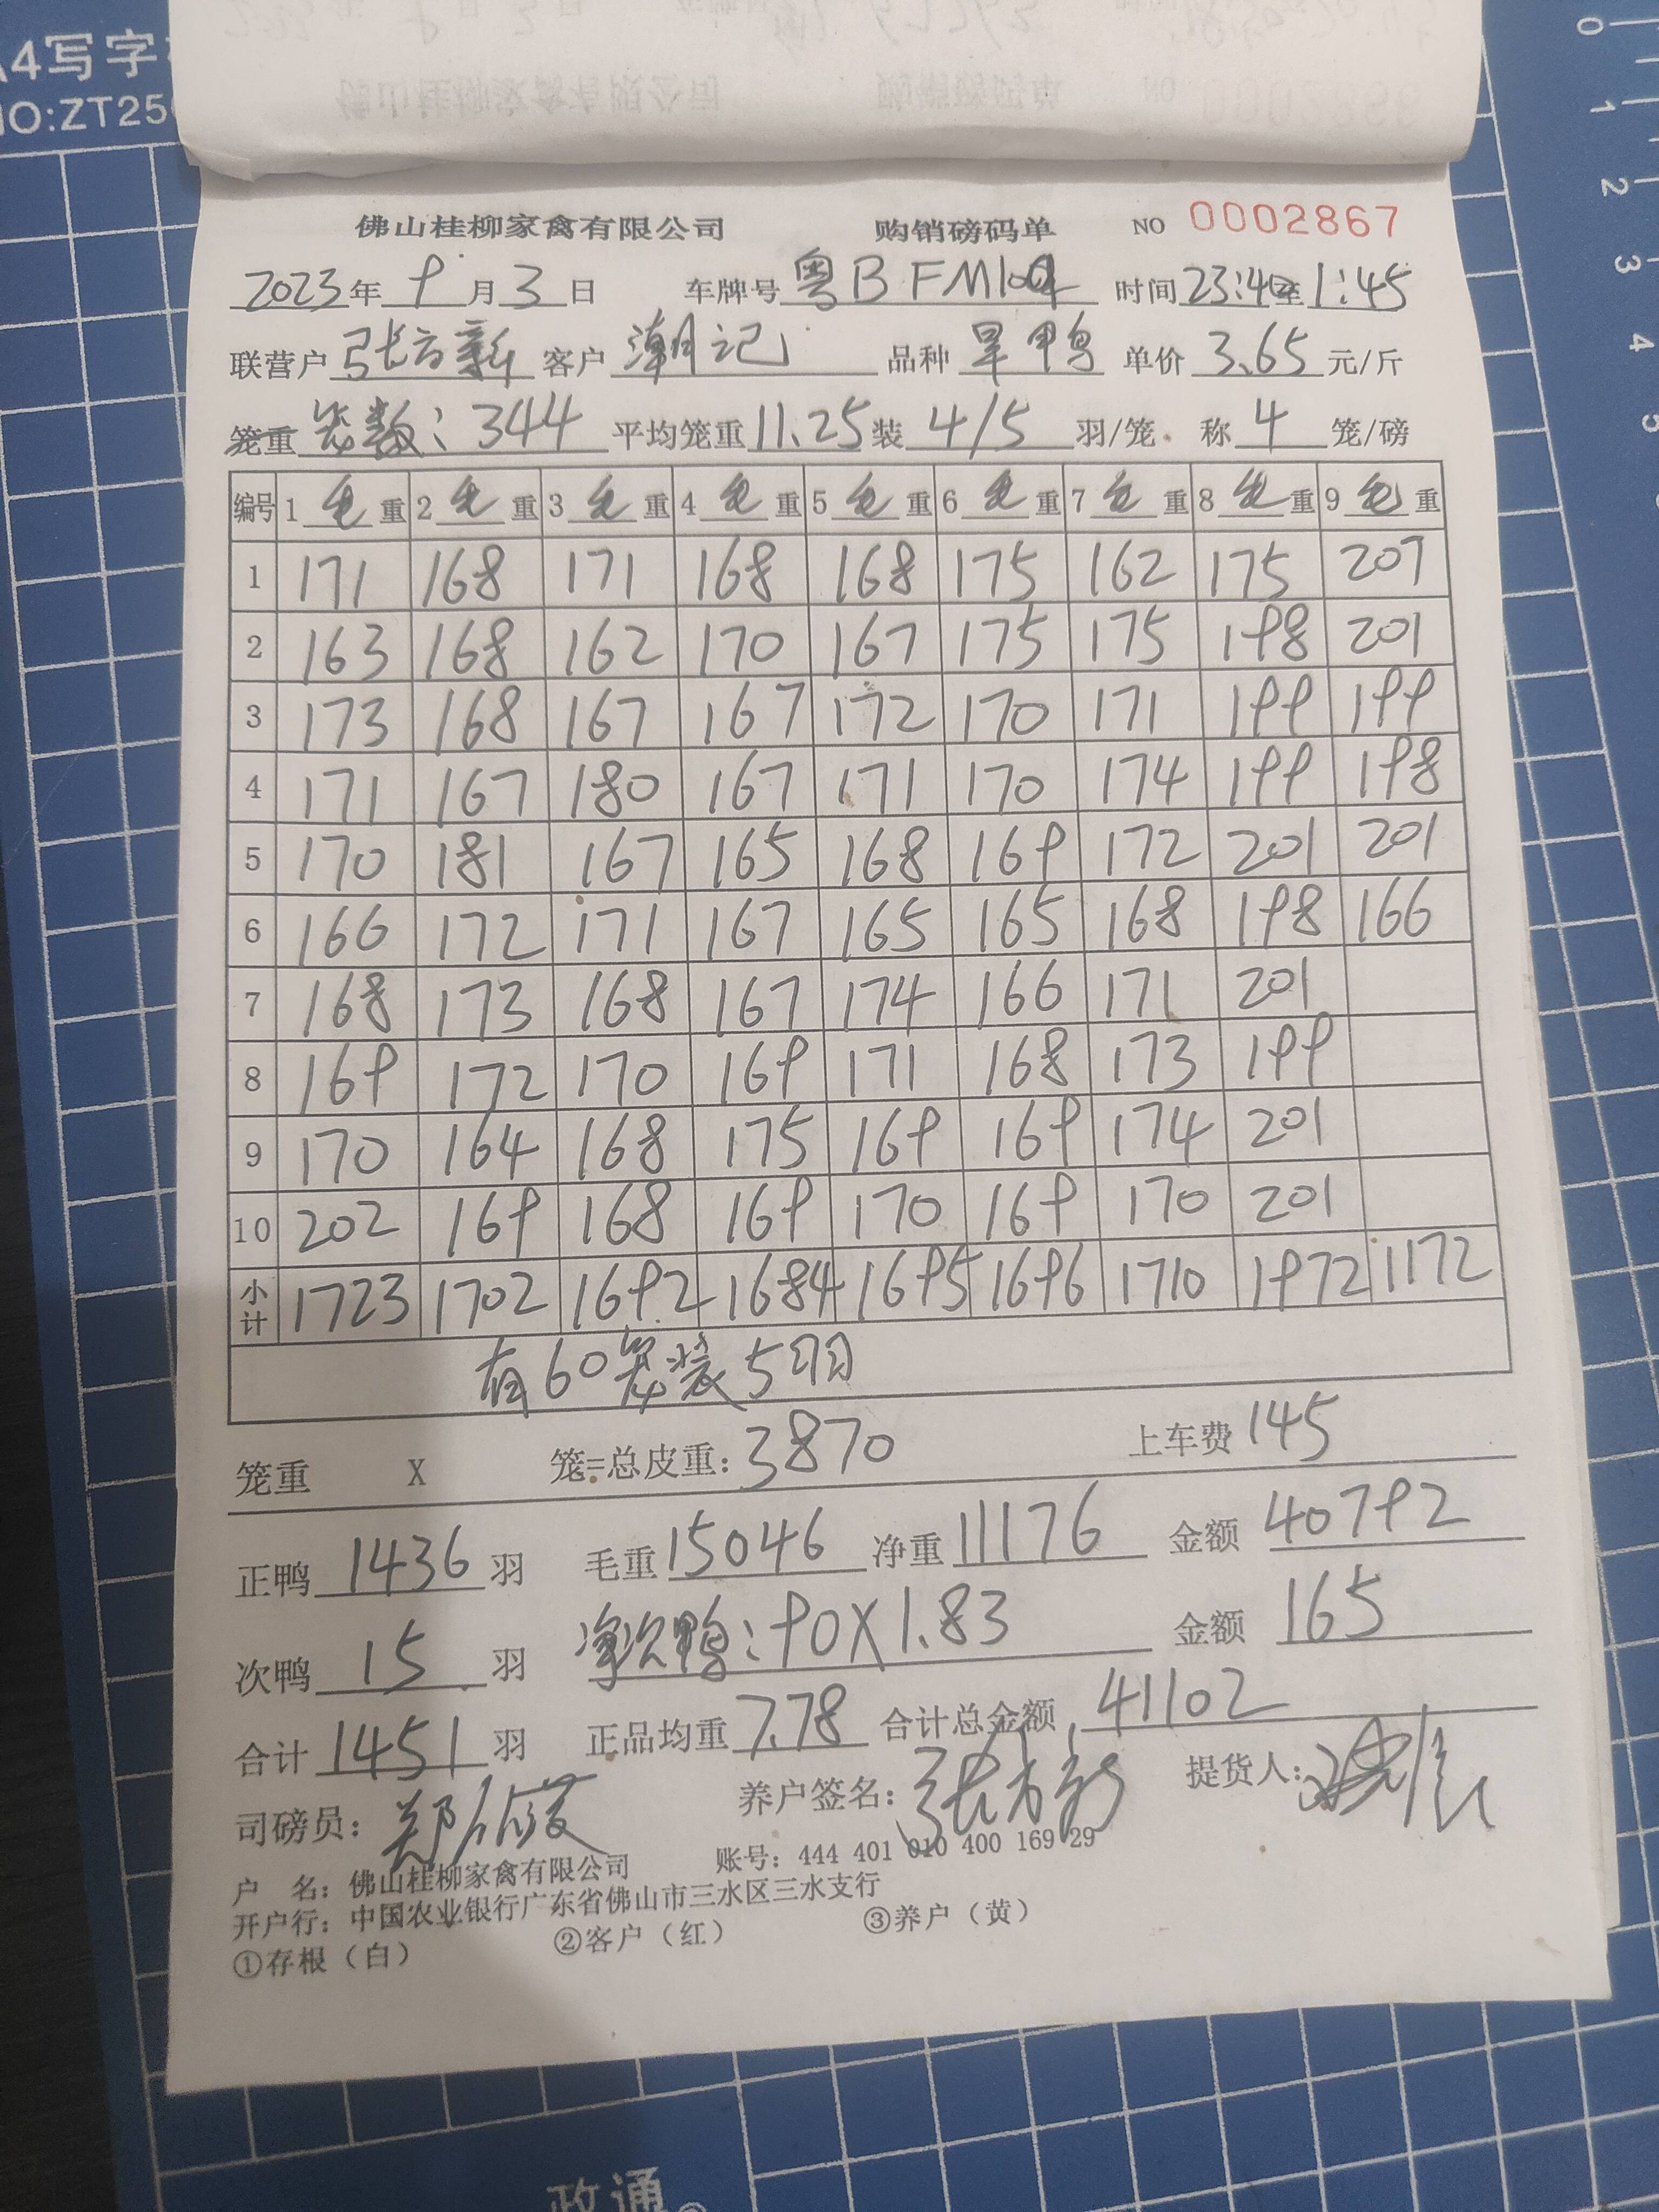 A4写字
NO:ZT25
佛山桂柳家禽有限公司 购销磅码单 NO 0002867
2023年 9月 3日 车牌号 粤B FM10 时间 23:40至1:45
联营户 张方新 客户 潮记 品种 旱鸭 单价 3.65 元/斤
笼重 笼数:344 平均笼重 11.25 装 4/5 羽/笼 称 4 笼/磅
编号 1 毛 重 2 毛 重 3 毛 重 4 毛 重 5 毛 重 6 毛 重 7 毛 重 8 毛 重 9 毛 重
1 171 168 171 168 168 175 162 175 207
2 163 168 162 170 167 175 175 198 201
3 173 168 167 167 172 170 171 199 199
4 171 167 180 167 171 170 174 199 198
5 170 181 167 165 168 169 172 201 201
6 166 172 171 167 165 165 168 198 166
7 168 173 168 167 174 166 171 201
8 169 172 170 169 171 168 173 199
9 170 164 168 175 169 169 174 201
10 202 169 168 169 170 169 170 201
小计 1723 1702 1692 1684 1695 1696 1710 1972 1172
有60笼装5羽
笼重 X 笼=总皮重:3870 上车费 145
正鸭 1436 羽 毛重 15046 净重 11176 金额 40792
次鸭 15 羽 净次鸭:90X1.83 金额 165
合计 1451 羽 正品均重 7.78 合计总金额 41102
司磅员: 养户签名:张方新 提货人:
户 名:佛山桂柳家禽有限公司 账号:444 401 010 400 169 29
开户行:中国农业银行广东省佛山市三水区三水支行
①存根(白) ②客户(红) ③养户(黄)
政通